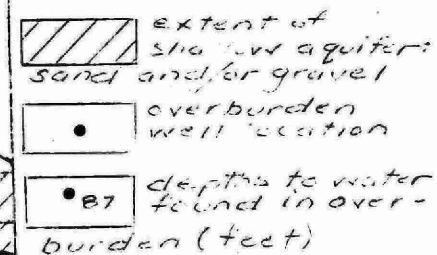 extent of
shallow aquifer:
sand and/or gravel
overburden
well location
87
depths to water
found in over-
burden (feet)